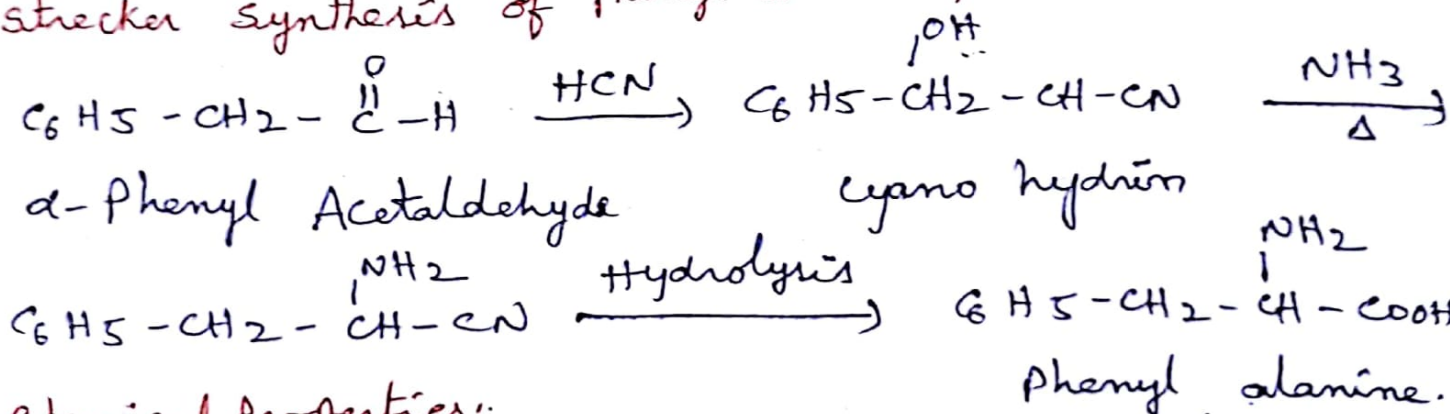 Strecker Synthesis of
OH
O
C6H5-CH2-C-H HCN C6H5-CH2-CH-CN NH3
Δ
α-Phenyl Acetaldehyde cyano hydrin
NH2 NH2
C6H5-CH2-CH-CN Hydrolysis C6H5-CH2-CH-COOH
Phenyl alanine.